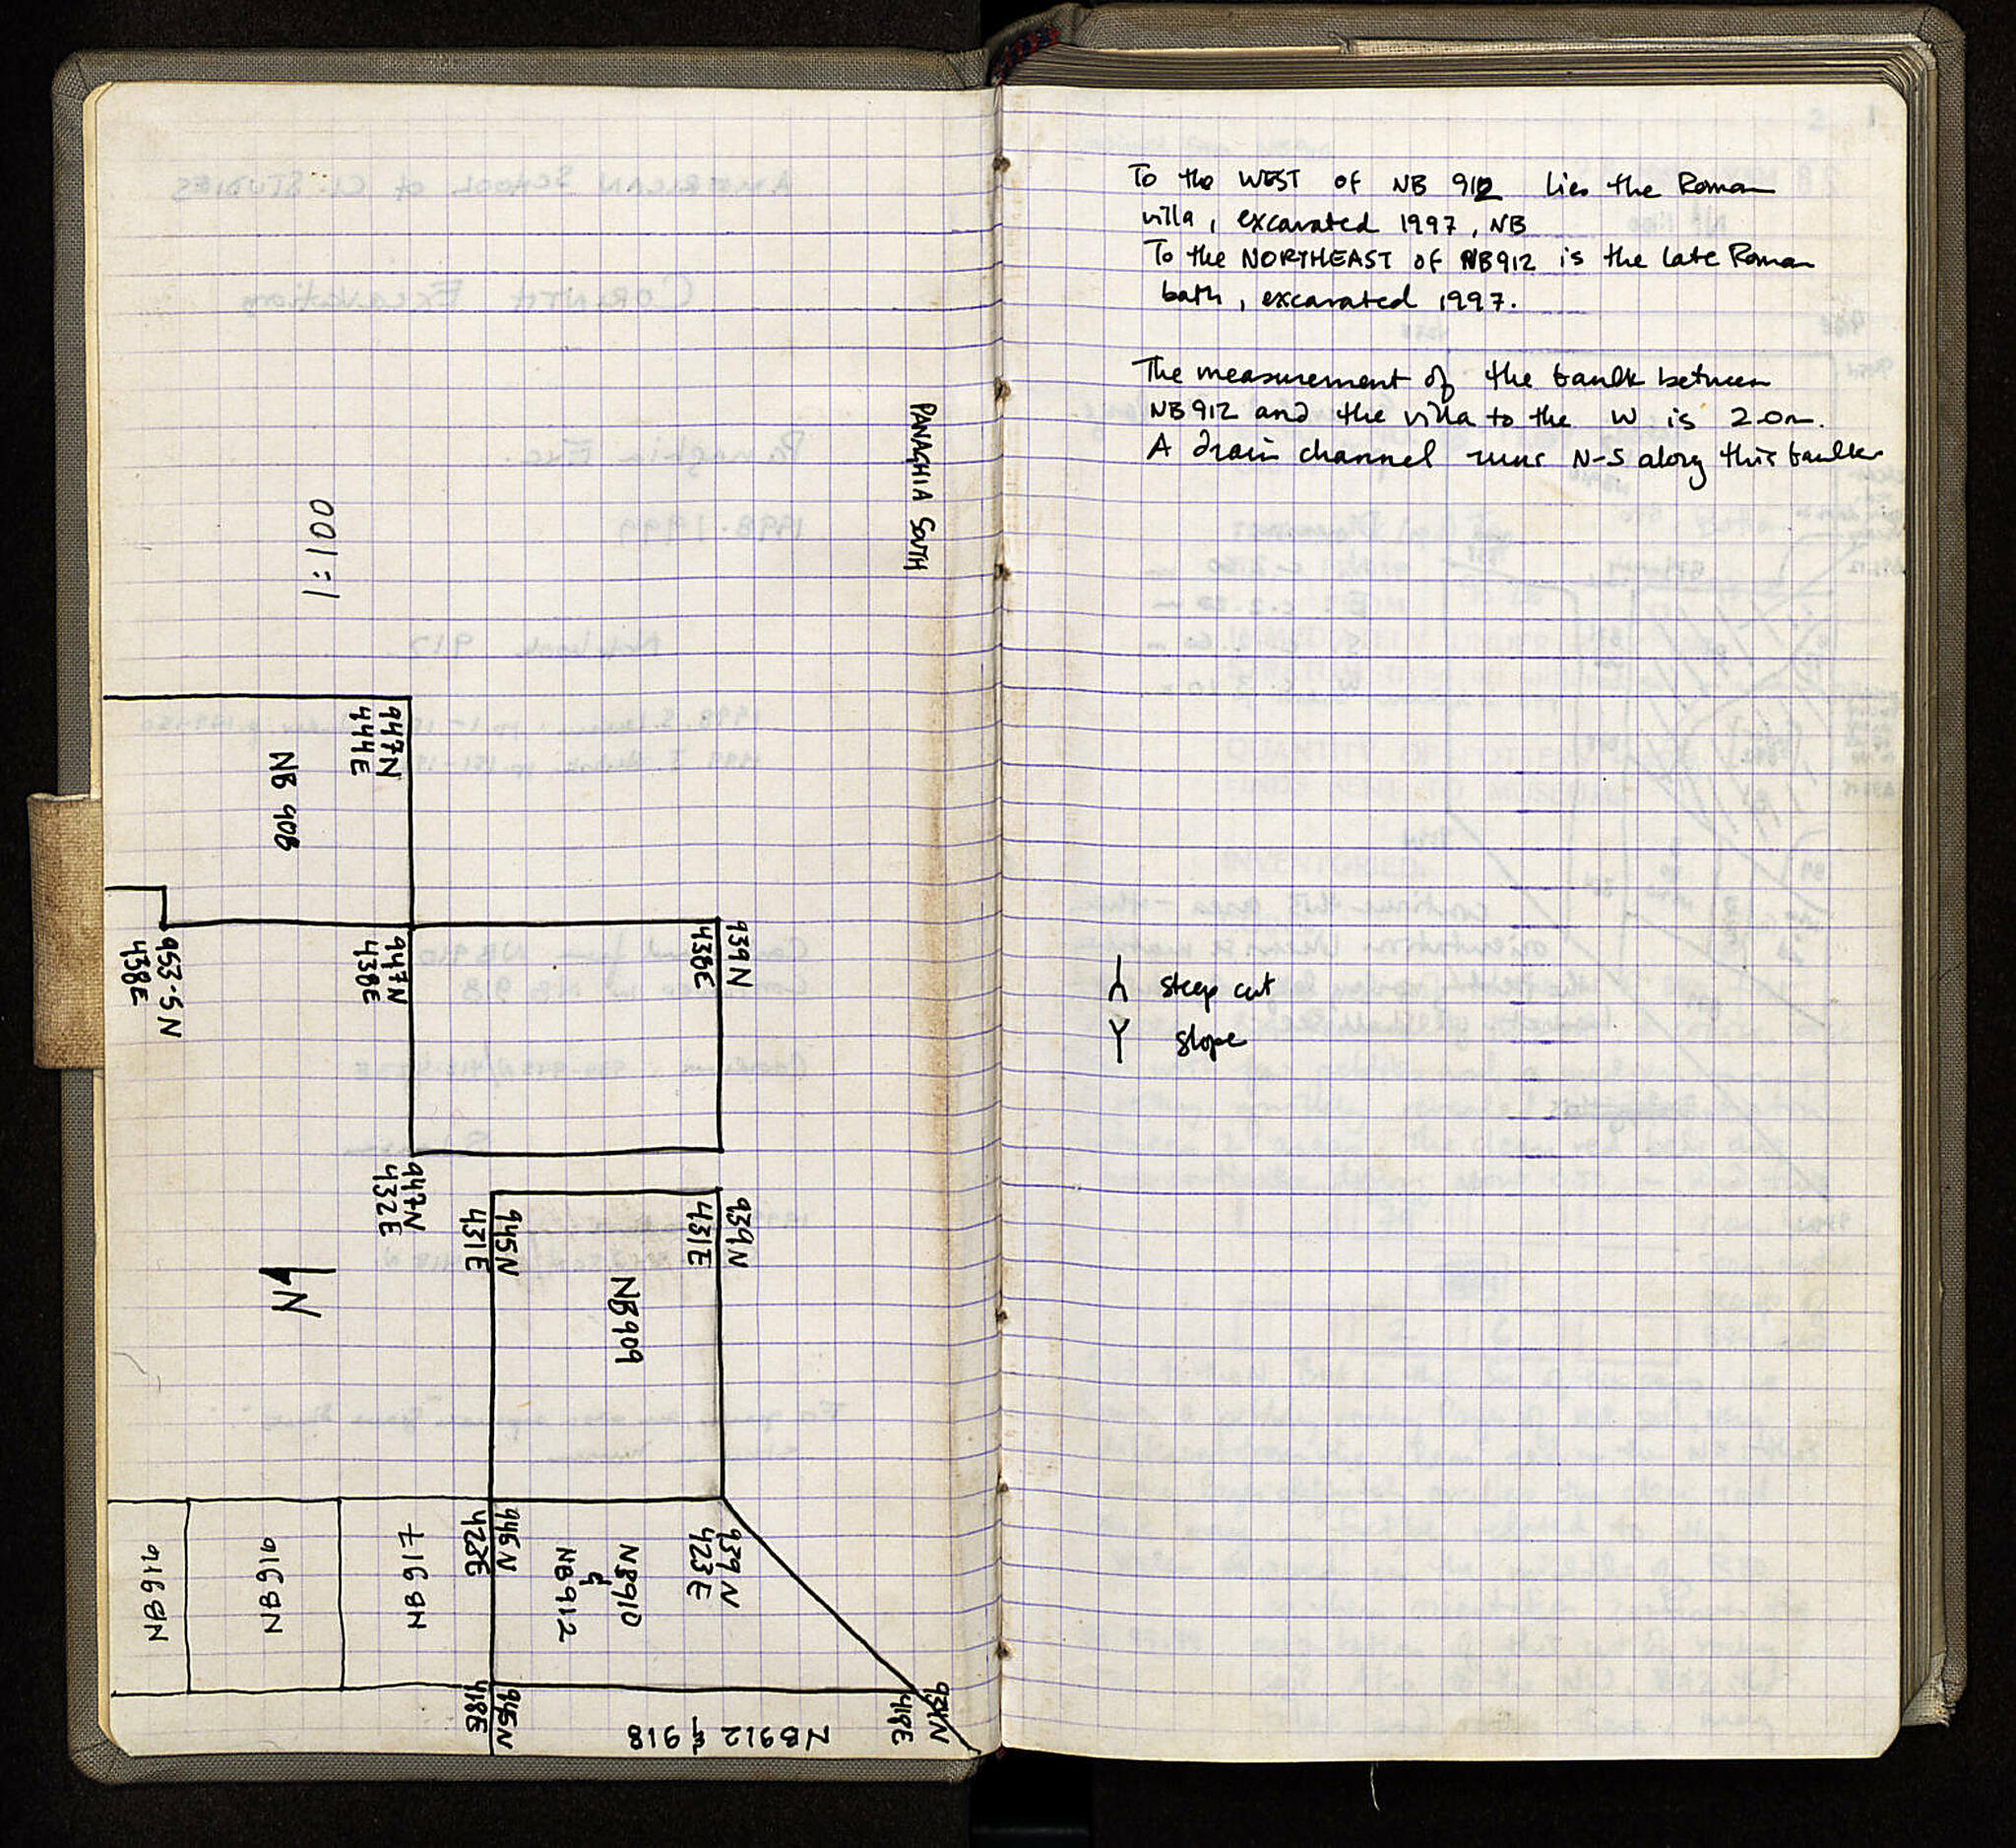 PANAGHIA SOUTH
1:100
947N
444E
NB 908
953.5N
438E
947N
438E
939N
438E
947N
432E
N
945N
431E
939N
431E
NB909
945N
423E
939N
423E
NB910
&
NB912
NB917
NB916
NB916
945N
418E
934N
418E
NB912 & 918
To the WEST OF NB 912 lies the Roman
villa, excavated 1997, NB
To the NORTHEAST OF NB912 is the late Roman
bath, excavated 1997.
The measurement of the baulk between
NB912 and the villa to the W is 2.0m.
A drain channel runs N-S along this baulk
steep cut
slope